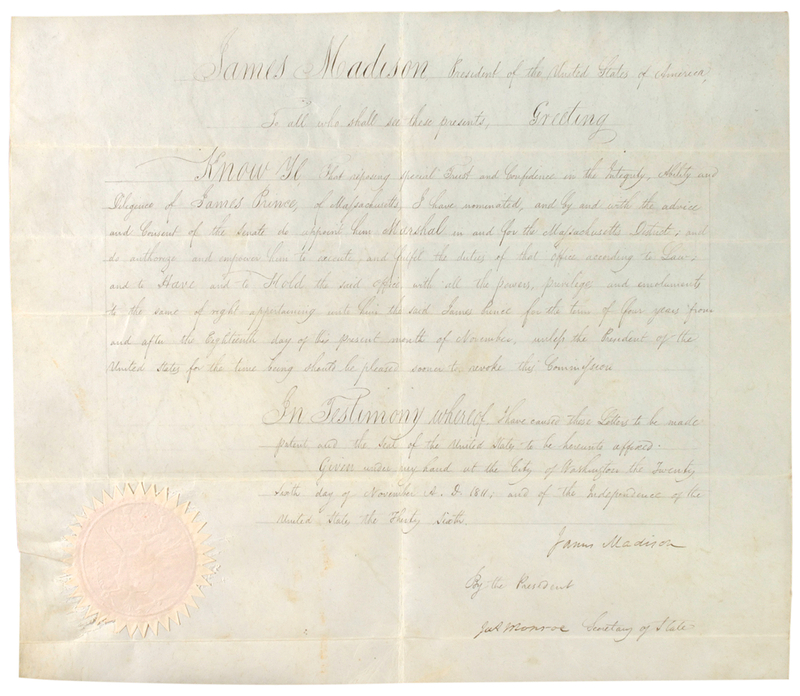 James Madison President of the United States of America,
To all who shall see these presents, Greeting
Know Ye, That reposing special Trust and Confidence in the Integrity, Ability and
Diligence of James Prince, of Massachusetts I have nominated, and by and with the advice
and Consent of the Senate do appoint him Marshal in and for the Massachusetts District; and
do authorize and empower him to execute, and fulfil the duties of that office according to Law;
and to Have and to Hold the said office with all the powers, privileges and emoluments
to the same of right appertaining unto him the said James Prince for the term of four years from
and after the Eighteenth day of this present month of November, unless the President of the
United States for the time being should be pleased sooner to revoke this Commission
In Testimony whereof I have caused these Letters to be made
patent and the Seal of the United States to be hereunto affixed.
Given under my hand at the City of Washington the Twenty
Sixth day of November A. D. 1811; and of the Independence of the
United States the Thirty Sixth.
James Madison
By the President
Jas Monroe Secretary of State